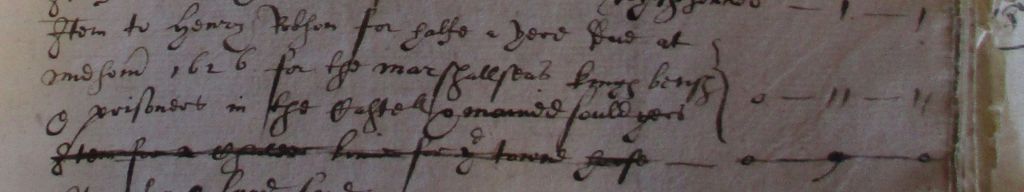 Item to Henry Robson for halfe a yere due at
midsom 1626 for the marshallseas kyngs bensh
& prisoners in the Castell & maimed souldyers o — 11 — 11
Item for a lime for ye towne — o — 9 — o